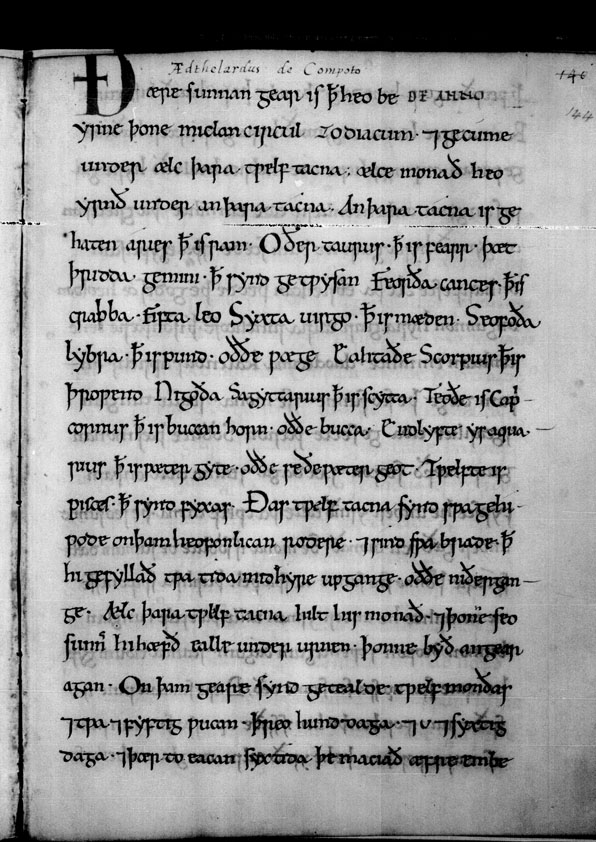 Ædthelardus de Compoto
146
144
Ðære sunnan gear is ꝥ heo be DE ANNO
yrne þone miclan circul zodiacum · ⁊ gecume
under ælc þara tƿelf tacna. ælce monað heo
yrnð under an þara tacna. An þara tacna is ge
haten aries ꝥ is ram. Oðer taurus · ꝥ is fearr. þæt
þridda gemini · ꝥ synd getƿysan Feorða cancer · ꝥ is
crabba · Fifta leo Syxta uirgo · ꝥ is mæden. Seofoða
lybra · ꝥ is pund · oððe ƿæge Eahtaðe Scorpius ꝥ is
þroƿend Nigoða Sagyttarius ꝥ is scytta · Teoðe is Capͥ
cornus ꝥ is buccan horn · oððe bucca · Endlyfte ys aqua
rius ꝥ is ƿæter gyte · oððe se ðe ƿæter geot · Tƿelfte is
pisces · ꝥ synd fyxas · Ðas tƿelf tacna synd sƿa gehi
ƿode on þam heofonlican rodere · ⁊ sind sƿa brade · ꝥ
hi gefyllað tƿa tida mid hyre upgange · oððe niðergan
ge · Ælc þara tƿelf tacna hilt his monað · ⁊ þonne seo
sunne hi hæfð ealle underurnen · þonne byð an gear
agan · On þam geare synd getealde tƿelf monðas
⁊ tƿa ⁊ fyftig ƿucan · þreo hund daga · ⁊ v ⁊ syxtig
daga · ⁊ þær to eacan syx tida þe maciað æfre embe